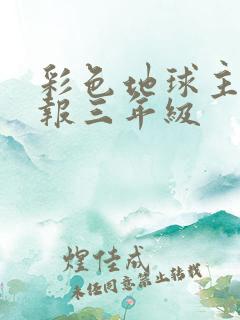 彩色地球主
報三年級
煌佳成
未任同意禁止转载